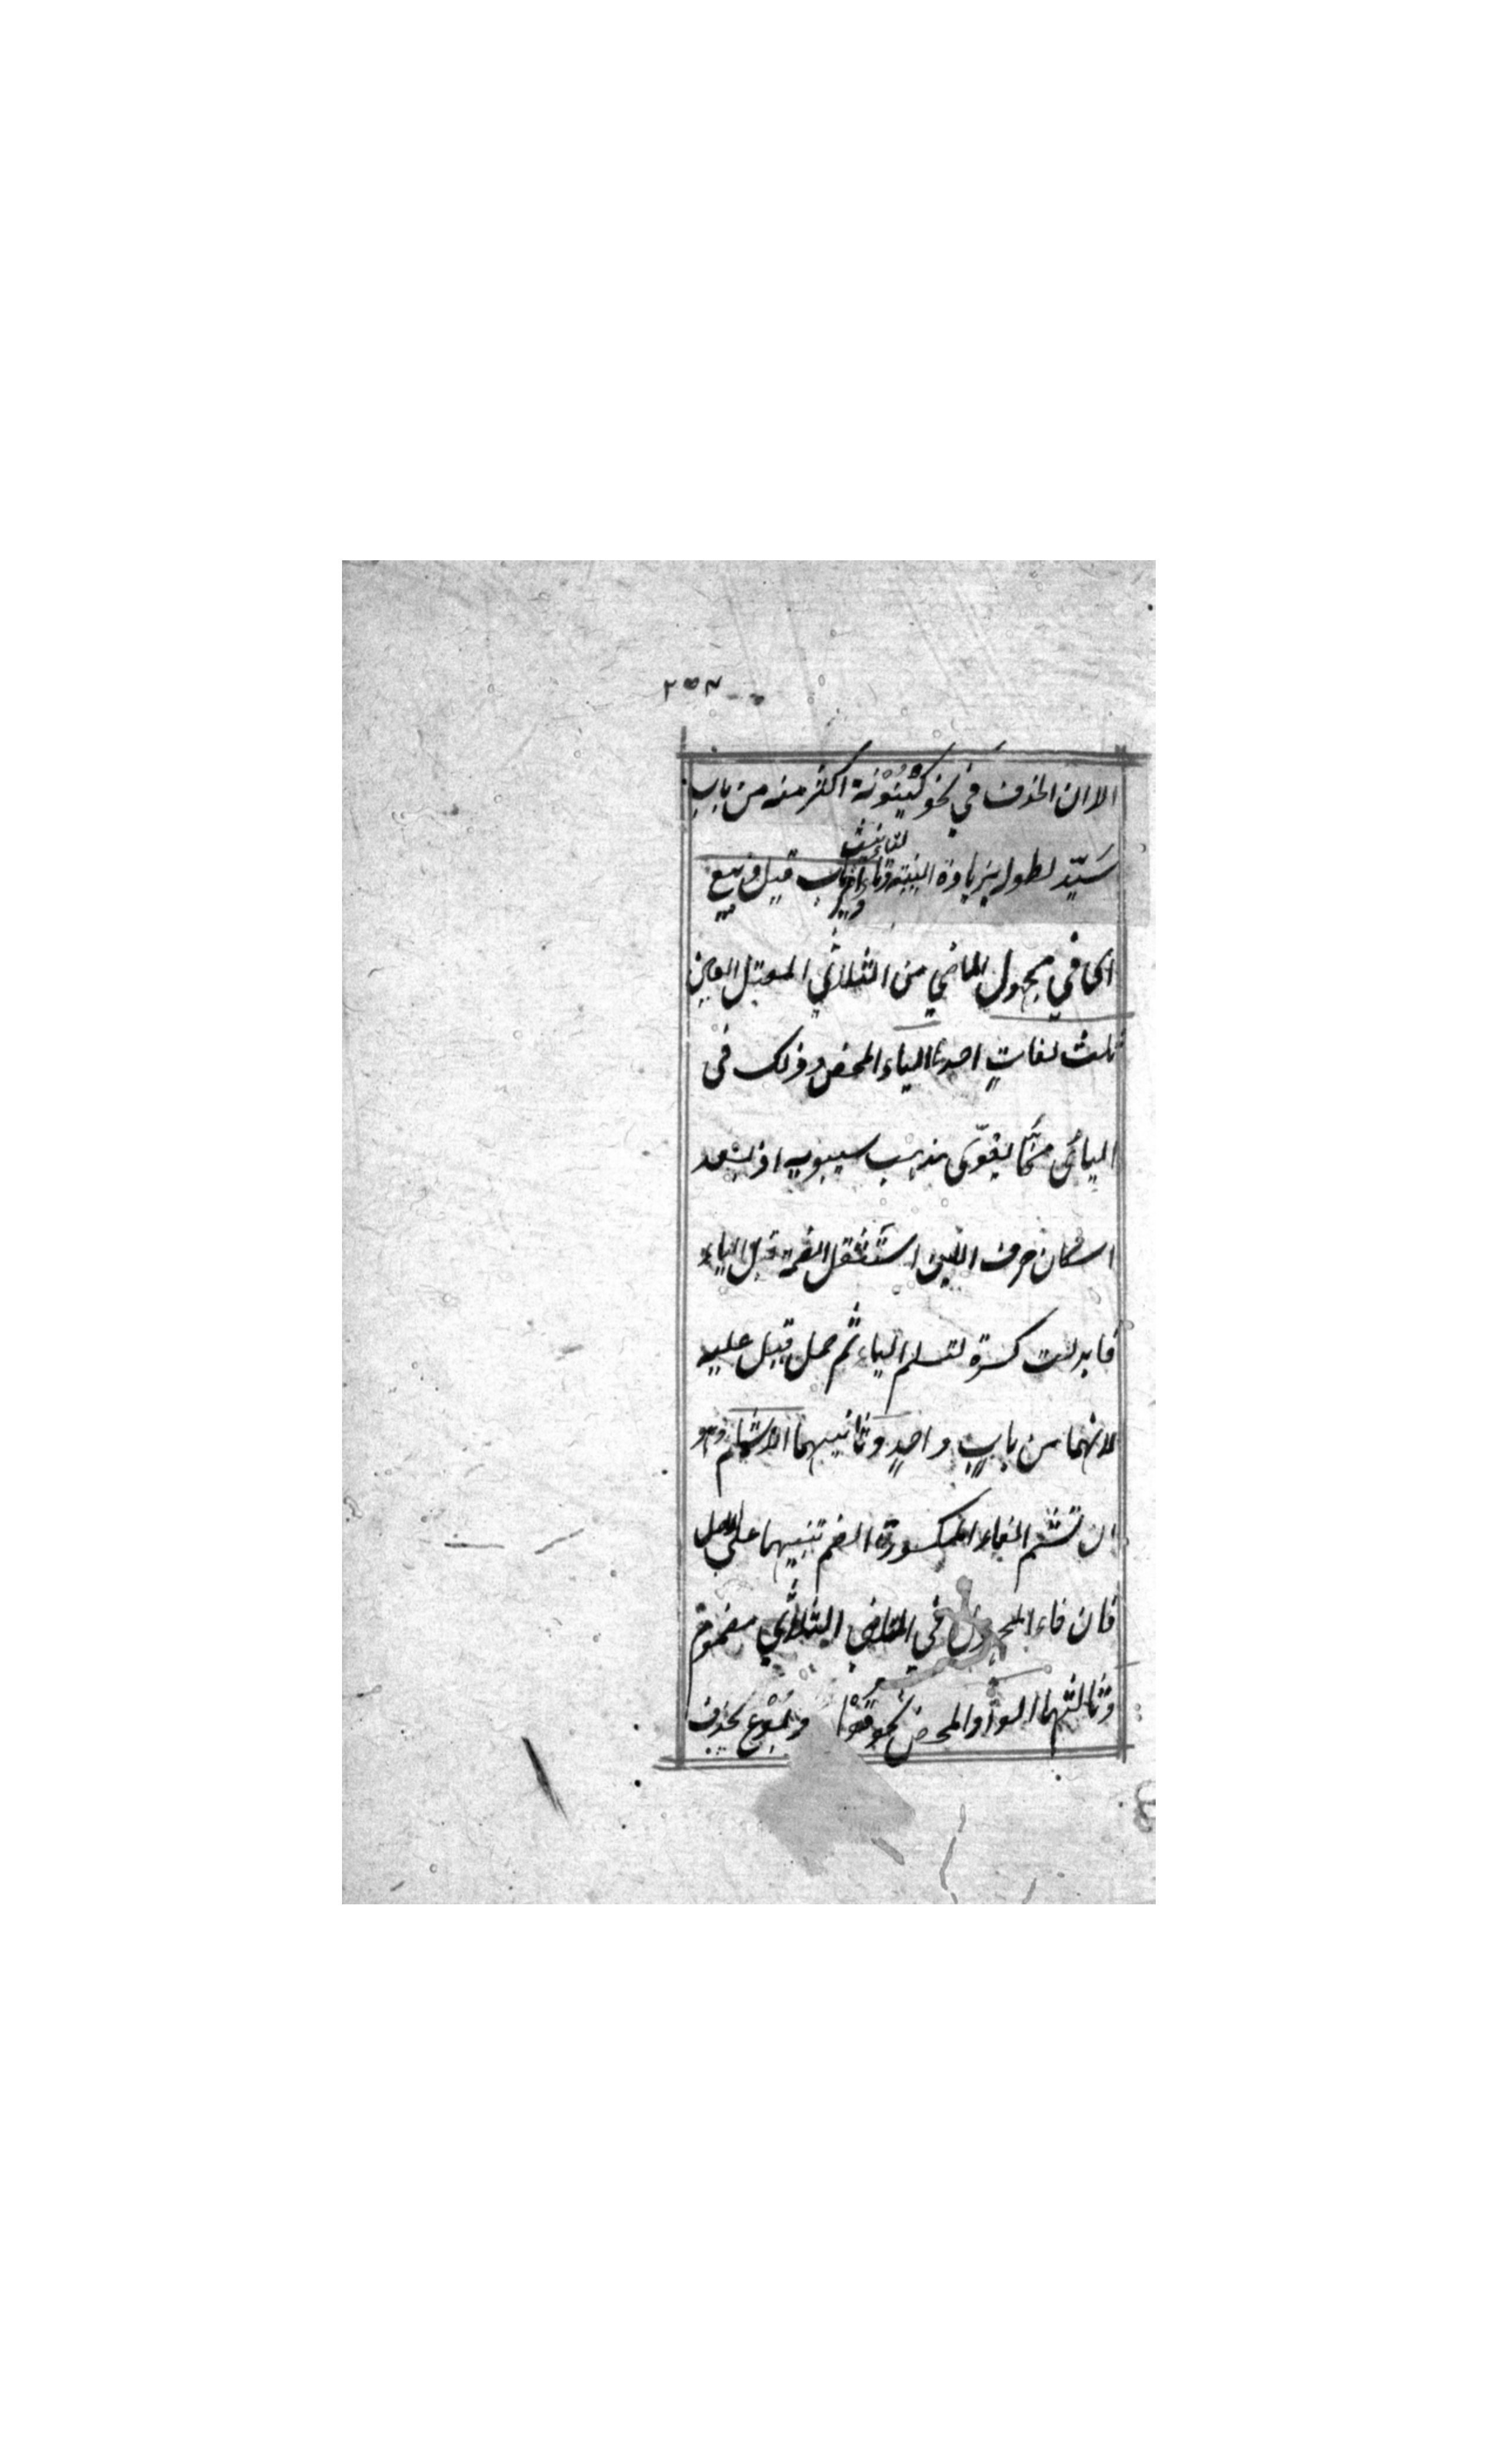 ٢٥٧
الا ان الحذف في نحو كَيْنُوْنَة اكثر منه من باب
سَيّد لطوله بزيادة البنية وتاء التانيث وفي باب قيل وبيع
اى في مجهول الماضي من الثلاثي المعتل العين
ثلث لغاتٍ احدها الياء المحض وذلك فى
اليائى ممّا يقوّى مذهب سيبويه اذ بعد
اسكان حرف اللين استثقل الضمة قبل الياء
فابدلت كسرة لتسلم الياء ثم حمل قيل عليه
لانهما من بابٍ واحدٍ وثانيهما الاشمام وهو
ان تشم الفاء المكسورة الضم تنبيها على الاصل
فان فاء المجهول في الماضي الثلاثي مضمومة
وثالثهما الواو المحض نحو قُوْل وبُوْع بحذف